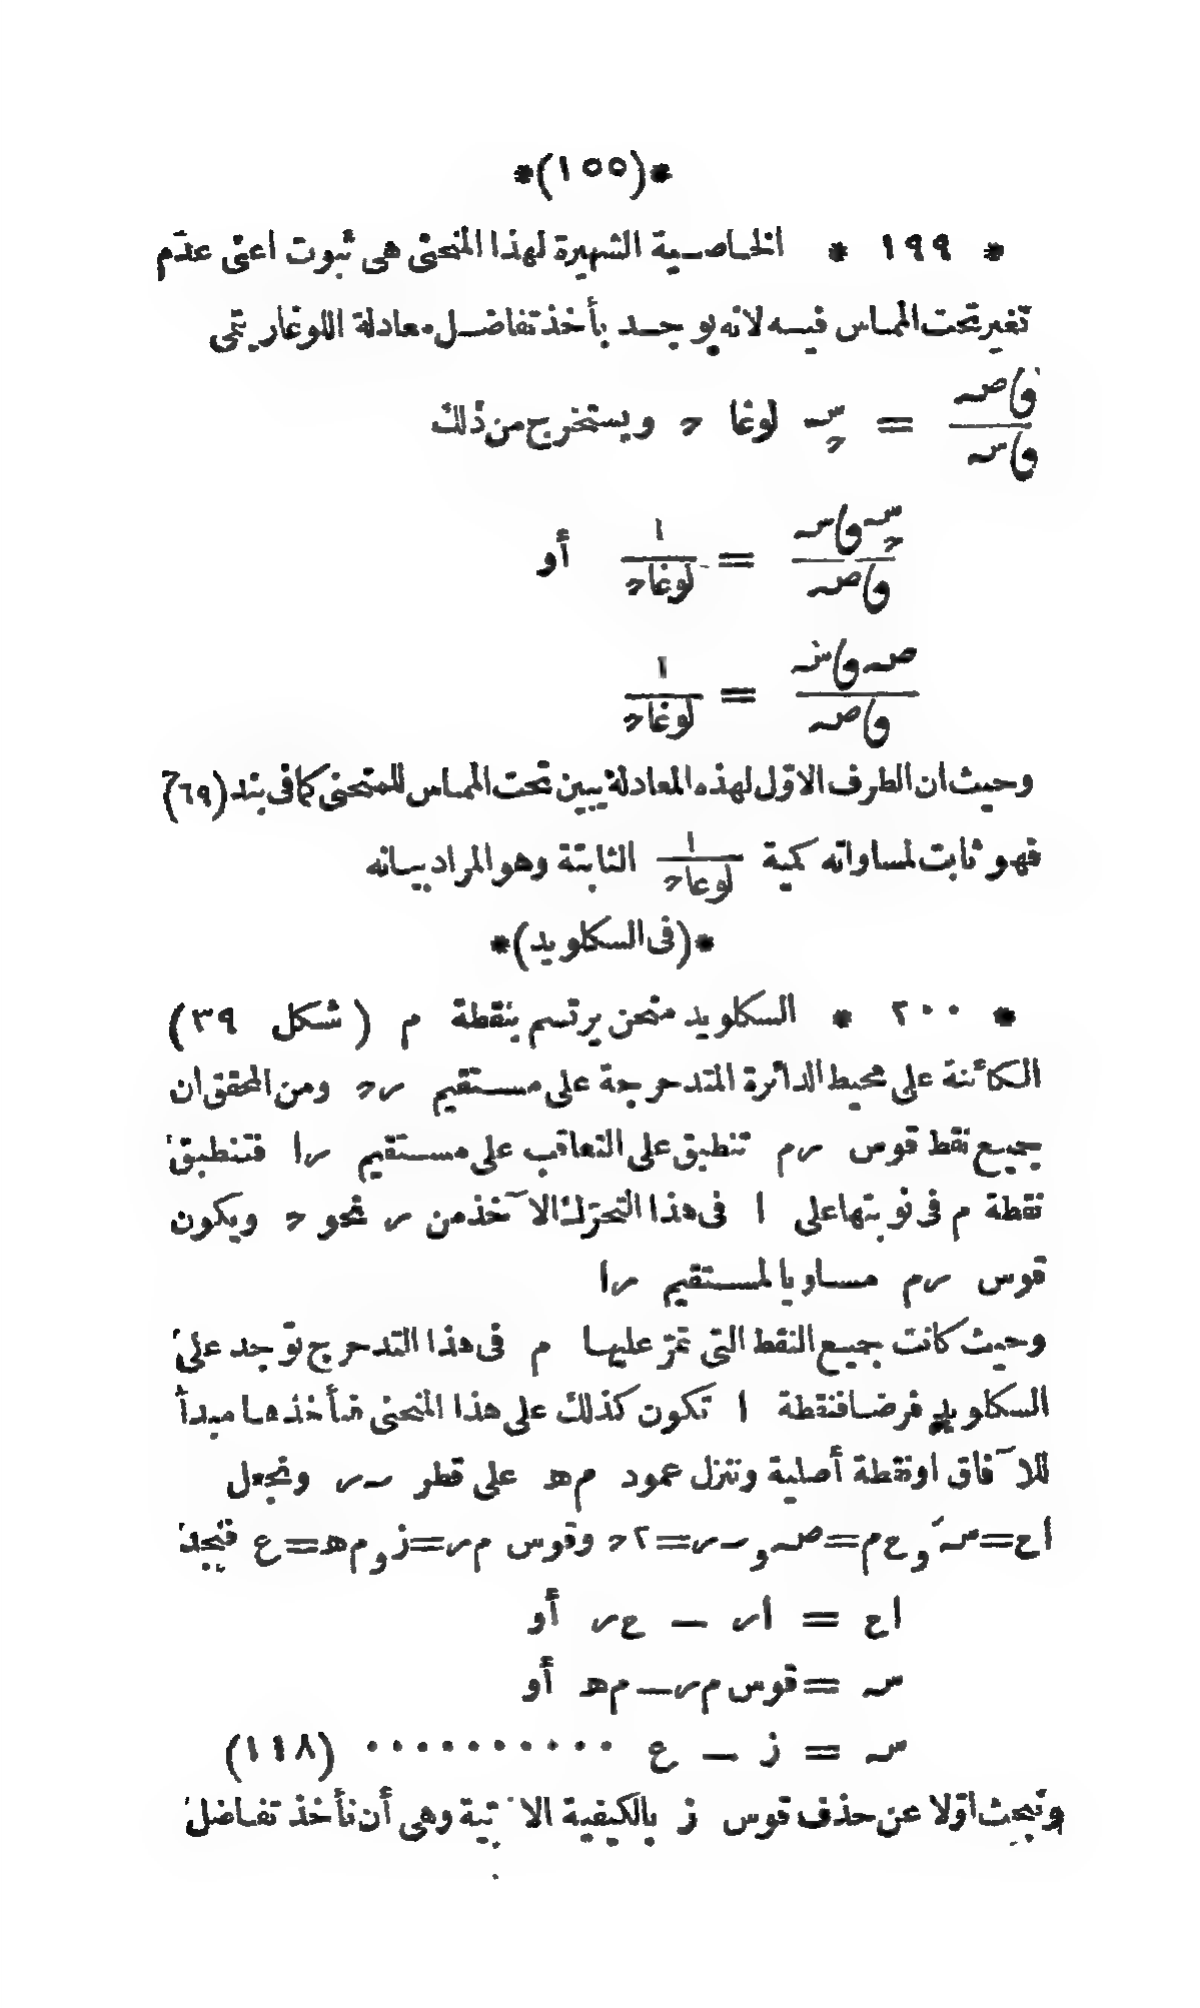 *(١٥٥)*
* ١٩٩ * الخاصية الشهيرة لهذا المنحنى هى ثبوت اعنى عدم
تغير تحت المماس فيه لانه يوجد بأخذ تفاضل معادلة اللوغاريتمى
ٯاصـ / ٯاسـ = حـ^سـ لوغا حـ ويستخرج من ذلك
حـ^سـ ٯاسـ / ٯاصـ = ١ / لوغاحـ أو
صـ ٯاسـ / ٯاصـ = ١ / لوغاحـ
وحيث ان الطرف الاوّل لهذه المعادلة يبين تحت المماس للمنحنى كما فى بند (٦٩)
فهو ثابت لمساواته كمية ١ / لوغاحـ الثابتة وهو المراد بيانه
*(فى السكلويد)*
* ٢٠٠ * السكلويد منحن يرتسم بنقطة م (شكل ٣٩)
الكائنة على محيط الدائرة المتدحرجة على مستقيم رحـ ومن المحقق ان
جميع نقط قوس رم تنطبق على التعاقب على مستقيم را فتنطبق
نقطة م فى نوبتها على ا فى هذا التحرّك الآخذ من ر نحو حـ ويكون
قوس رم مساويا لمستقيم را
وحيث كانت جميع النقط التى تمرّ عليها م فى هذا التدحرج توجد على
السكلويد فرضا فنقطة ا تكون كذلك على هذا المنحنى فنأخذها مبدأ
للآفاق او نقطة أصلية وننزل عمود م هـ على قطر ـر ونجعل
اح=سـ و ح م=صـ و ـر=٢حـ وقوس م ر=ز و م هـ=ع فنجد
اح = ار — ح ر أو
سـ = قوس م ر — م هـ أو
سـ = ز — ع .......... (١١٨)
ونبحث اوّلا عن حذف قوس ز بالكيفية الآتية وهى أن نأخذ تفاضل